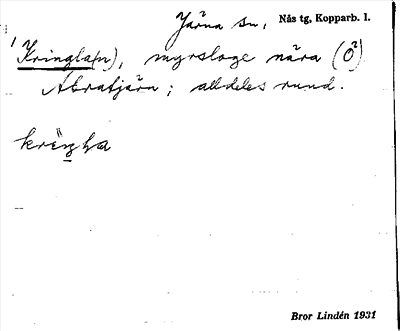 Järna sn, Nås tg, Kopparb. l.
1 Kringla(n), myrsloge nära (Ö²)
Abratjärn; alldeles rund.
Bror Lindén 1931